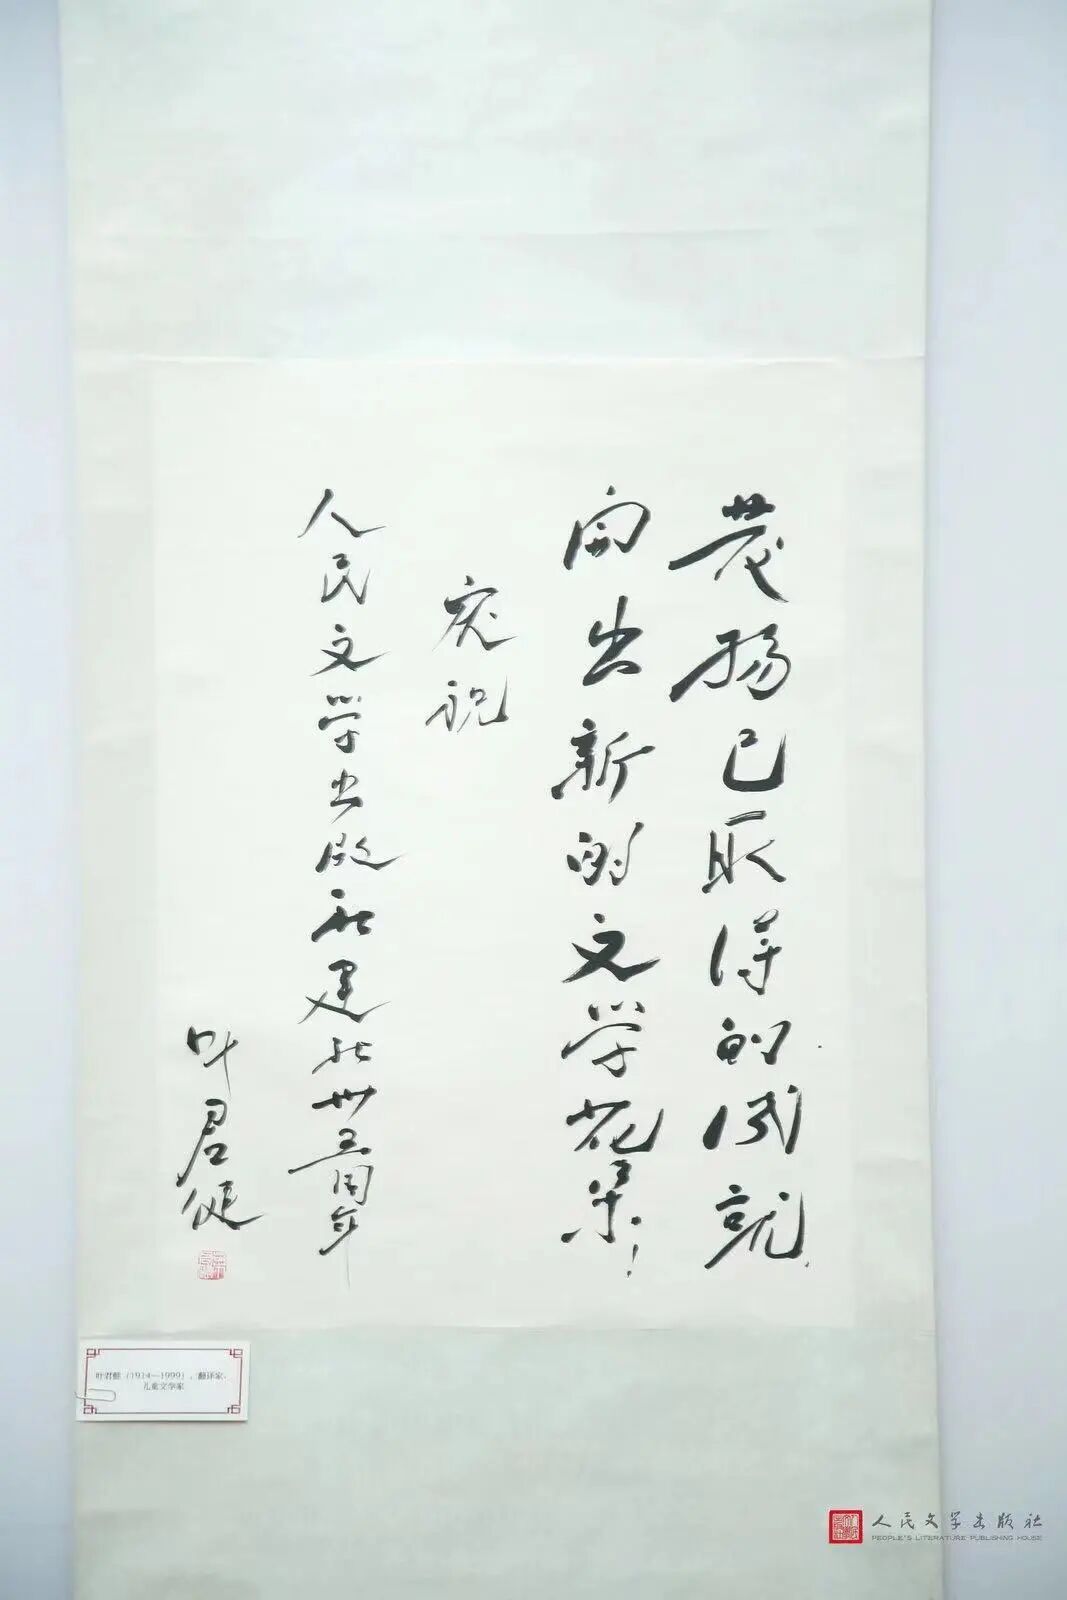 发扬已取得的成就，
开出新的文学花朵！
庆祝
人民文学出版社建社卅五周年
叶君健
叶君健（1914—1999），翻译家、
儿童文学家
人民文学出版社
PEOPLE'S LITERATURE PUBLISHING HOUSE